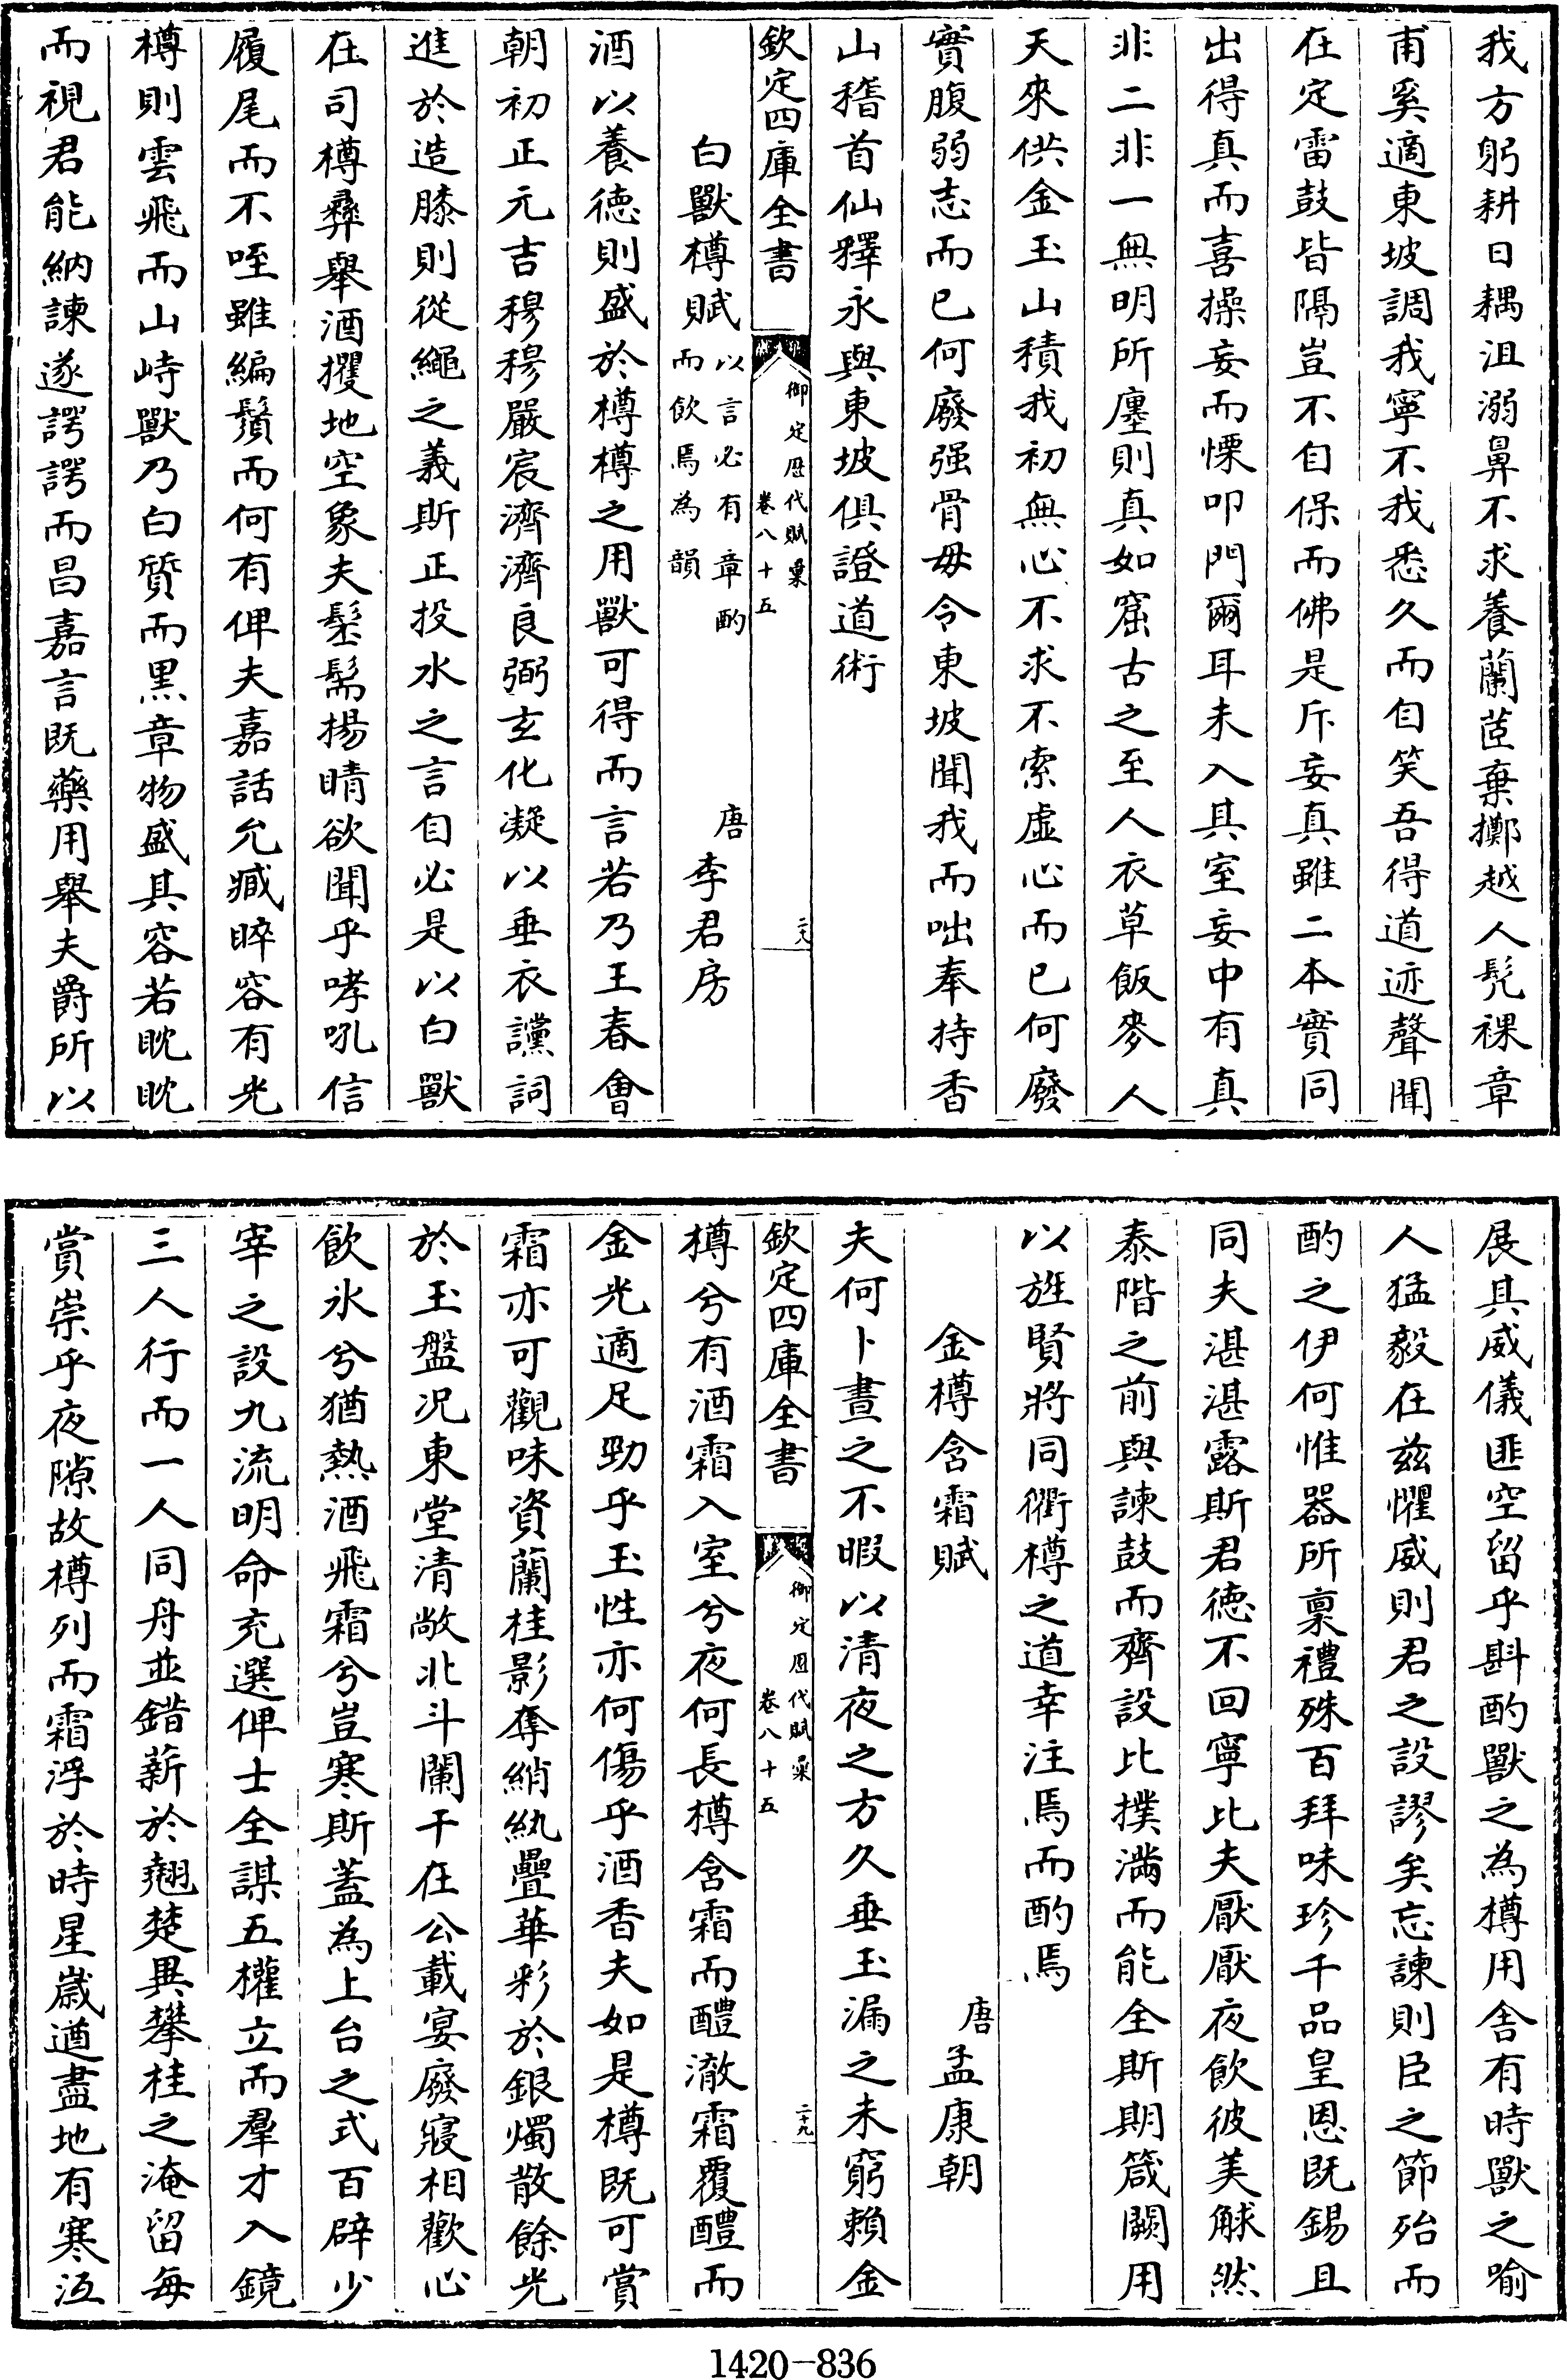 我方躬耕日耦沮溺鼻不求養蘭茝棄擲越人髠裸章
甫奚適東坡調我寧不我悉久而自笑吾得道迹聲聞
在定雷鼓皆隔豈不自保而佛是斥妄真雖二本實同
出得真而喜操妄而慄叩門爾耳未入其室妄中有真
非二非一無明所廛則真如窟古之至人衣草飯麥人
天來供金玉山積我初無心不求不索虛心而已何廢
實腹弱志而已何廢强骨毋令東坡聞我而咄奉持香
山稽首仙釋永與東坡俱證道術
欽定四庫全書
御定歴代賦彙
卷八十五
二八
白獸樽賦
以言必有章酌
而飲焉為韻
唐李君房
酒以養徳則盛於樽樽之用獸可得而言若乃王春會
朝初正元吉穆穆嚴宸濟濟良弼玄化凝以垂衣讜詞
進於造膝則從繩之義斯正投水之言自必是以白獸
在司樽彞舉酒攫地空象夫髬髵揚睛欲聞乎哮吼信
履尾而不咥雖編鬚而何有俾夫嘉話允臧睟容有光
樽則雲飛而山峙獸乃白質而黒章物盛其容若眈眈
而視君能納諫遂諤諤而昌嘉言既藥用舉夫爵所以
展其威儀匪空留乎斟酌獸之為樽用舍有時獸之喻
人猛毅在兹懼威則君之設謬矣忘諫則臣之節殆而
酌之伊何惟器所禀禮殊百拜味珍千品皇恩既錫且
同夫湛湛露斯君徳不回寧比夫厭厭夜飲彼美觩然
泰階之前與諫鼓而齊設比撲滿而能全斯期箴闕用
以旌賢將同衢樽之道幸注焉而酌焉
金樽含霜賦
唐孟康朝
夫何卜晝之不暇以清夜之方久垂玉漏之未窮賴金
欽定四庫全書
御定歴代賦彙
卷八十五
二十九
樽兮有酒霜入室兮夜何長樽含霜而醴澈霜覆醴而
金光適足勁乎玉性亦何傷乎酒香夫如是樽既可賞
霜亦可觀味資蘭桂影奪綃紈疊華彩於銀燭散餘光
於玉盤况東堂清敞北斗闌干在公載宴廢寢相歡心
飲氷兮猶熱酒飛霜兮豈寒斯蓋為上台之式百辟少
宰之設九流明命充選俾士全謀五權立而羣才入鏡
三人行而一人同舟並錯薪於翹楚異攀桂之淹留每
賞崇乎夜隙故樽列而霜浮於時星歲遒盡地有寒沍
1420-836